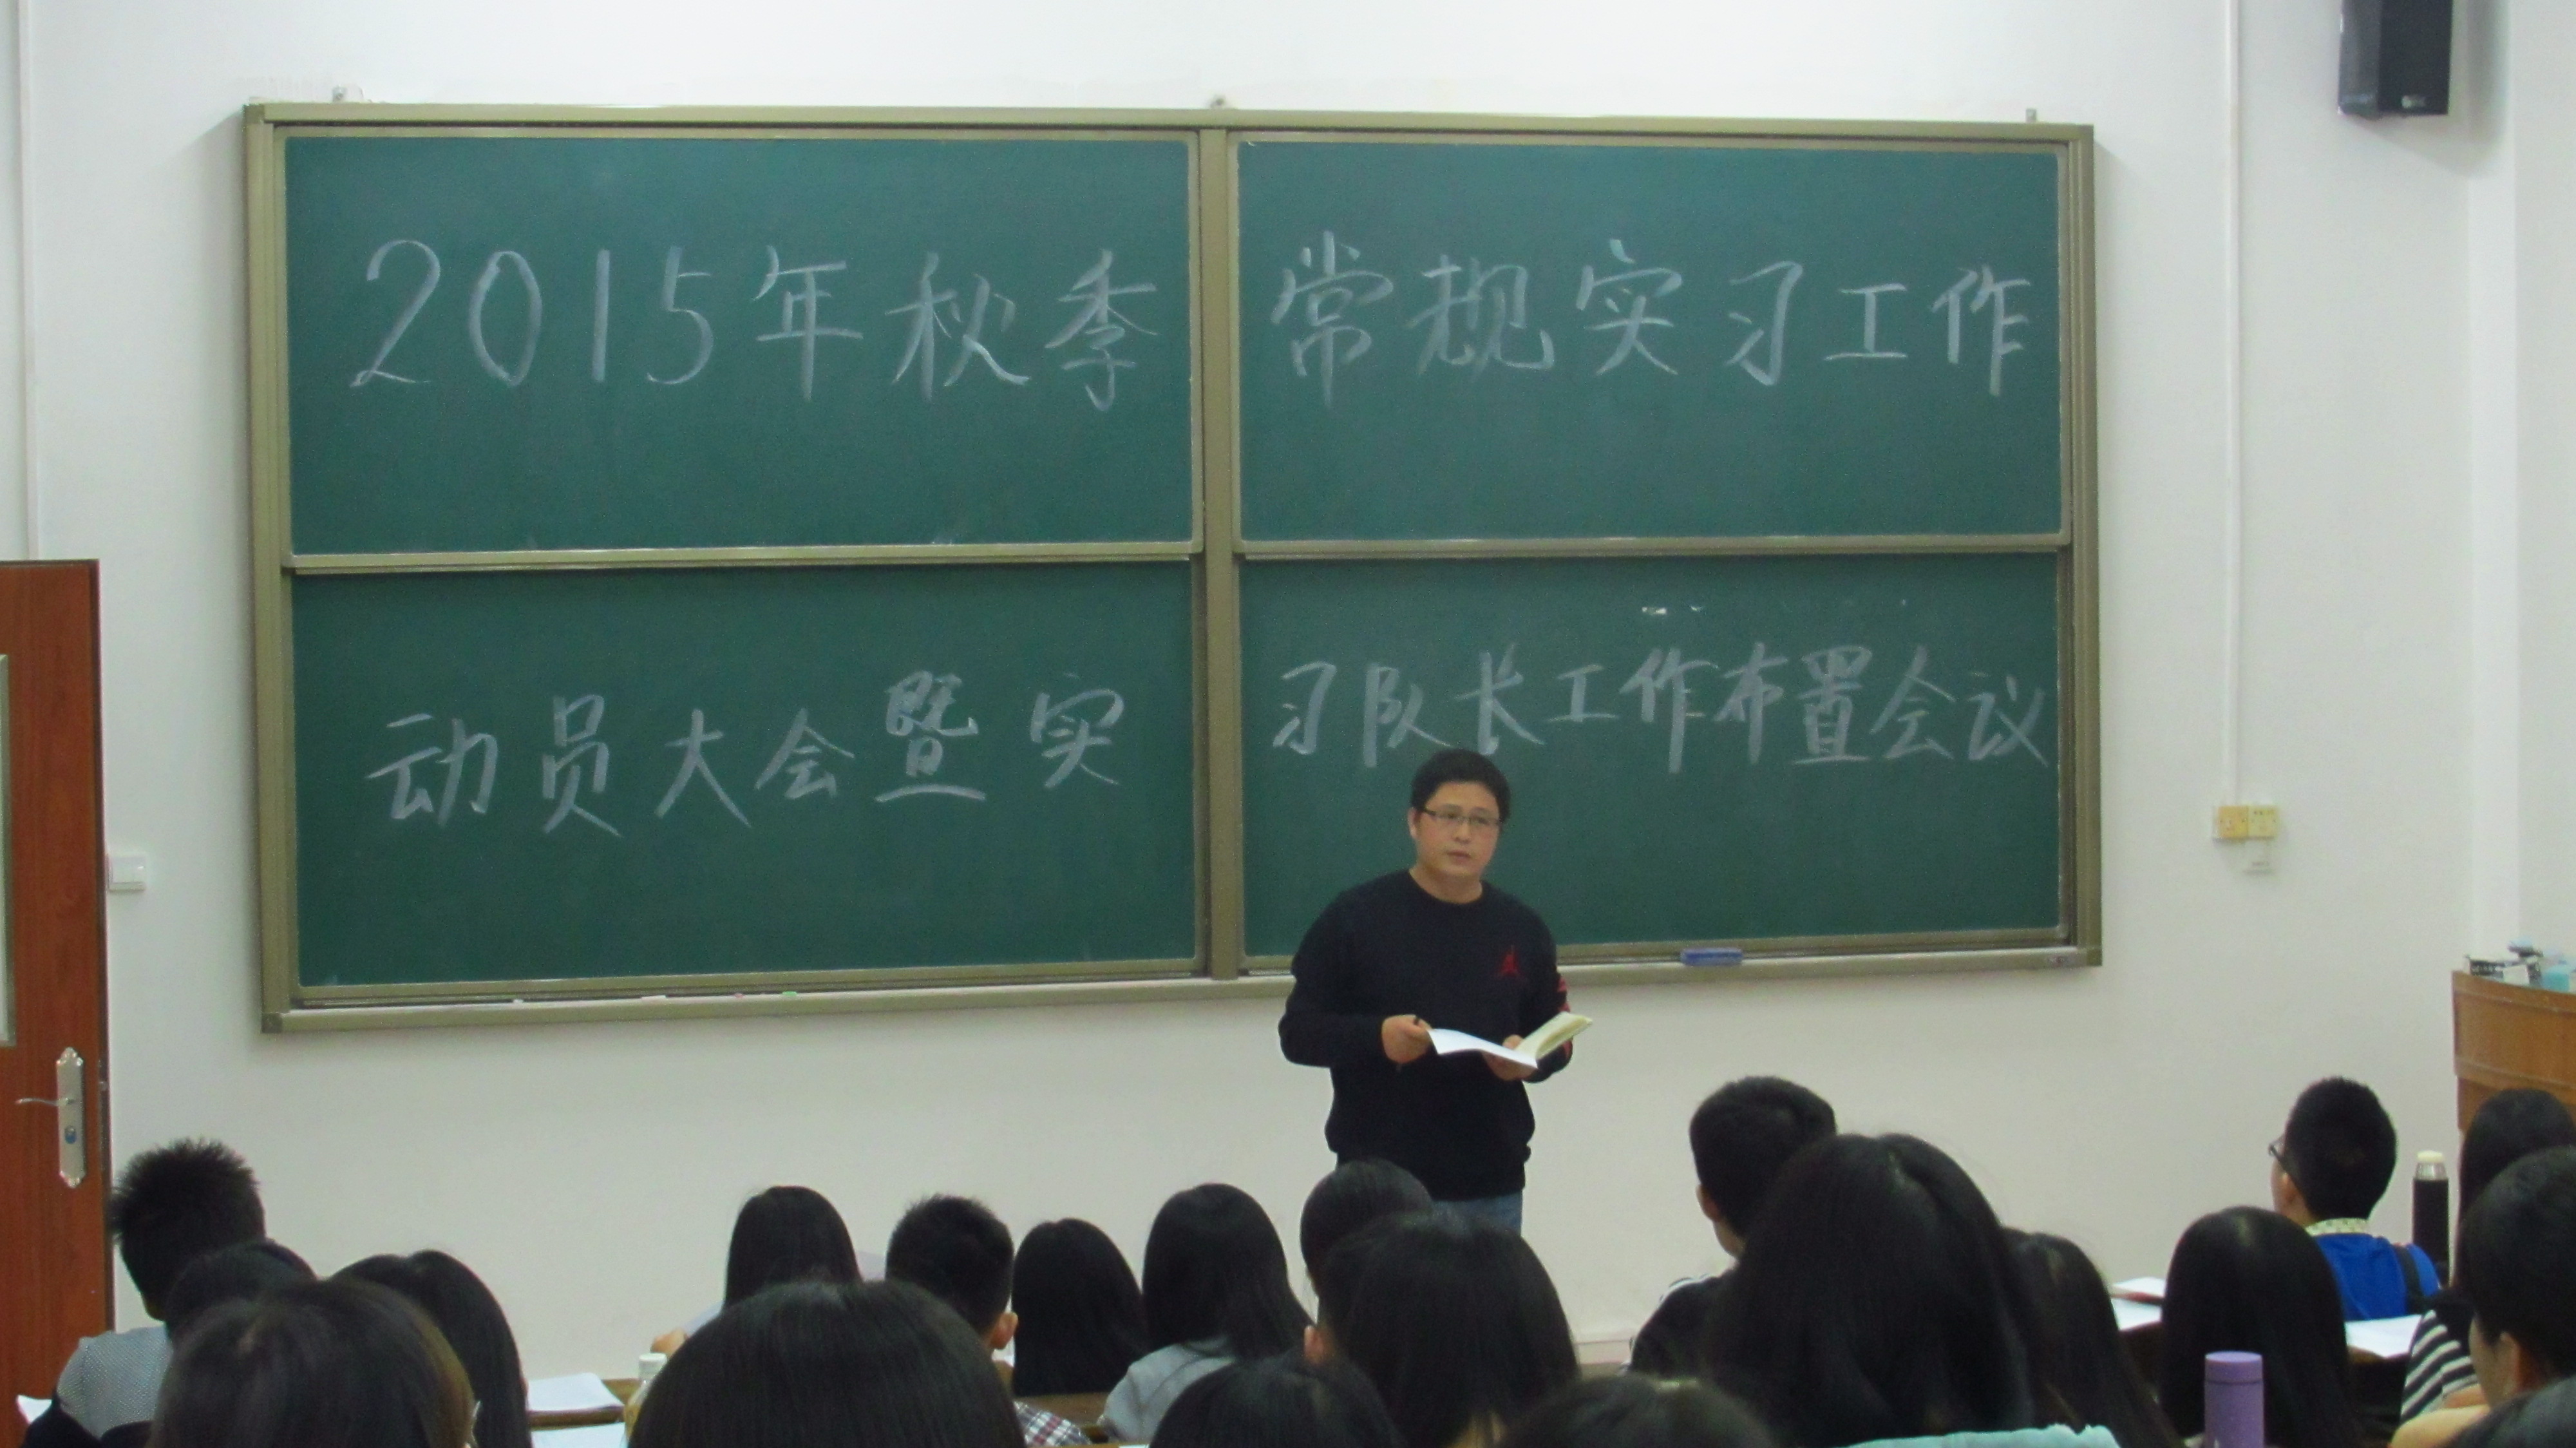 2015年秋季常规实习工作
动员大会暨实习队长工作布置会议